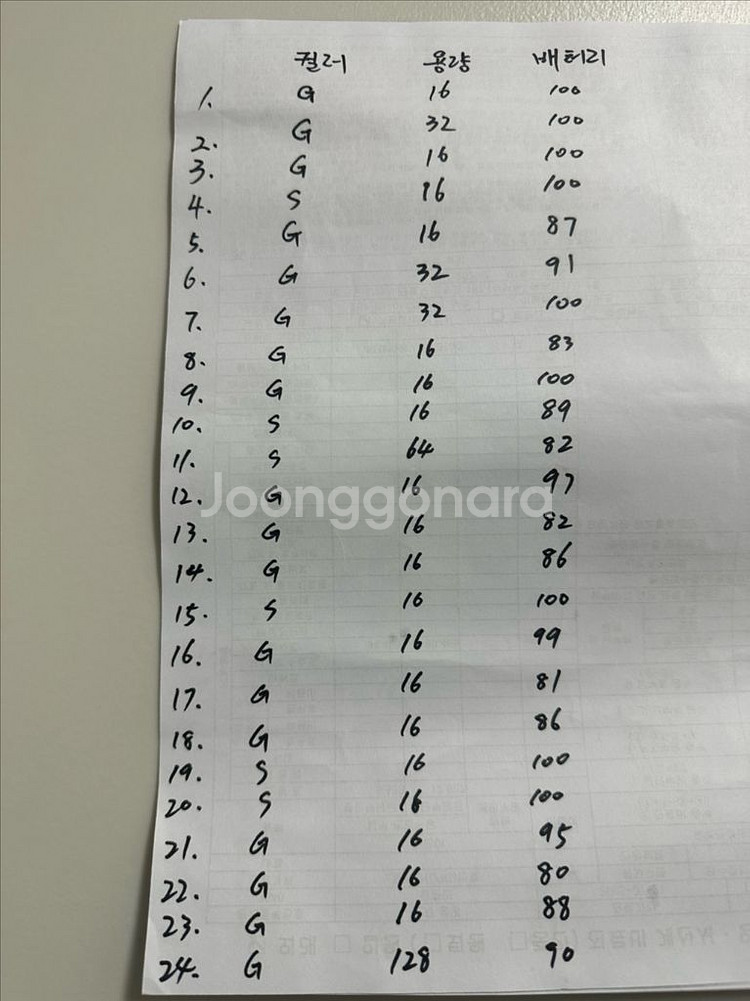 컬러 용량 배터리
1. G 16 100
2. G 32 100
3. G 16 100
4. S 16 100
5. G 16 87
6. G 32 91
7. G 32 100
8. G 16 83
9. G 16 100
10. S 16 89
11. S 64 82
12. G 16 97
Joonggonara
13. G 16 82
14. G 16 86
15. S 16 100
16. G 16 99
17. G 16 81
18. G 16 86
19. S 16 100
20. S 16 100
21. G 16 95
22. G 16 80
23. G 16 88
24. G 128 90